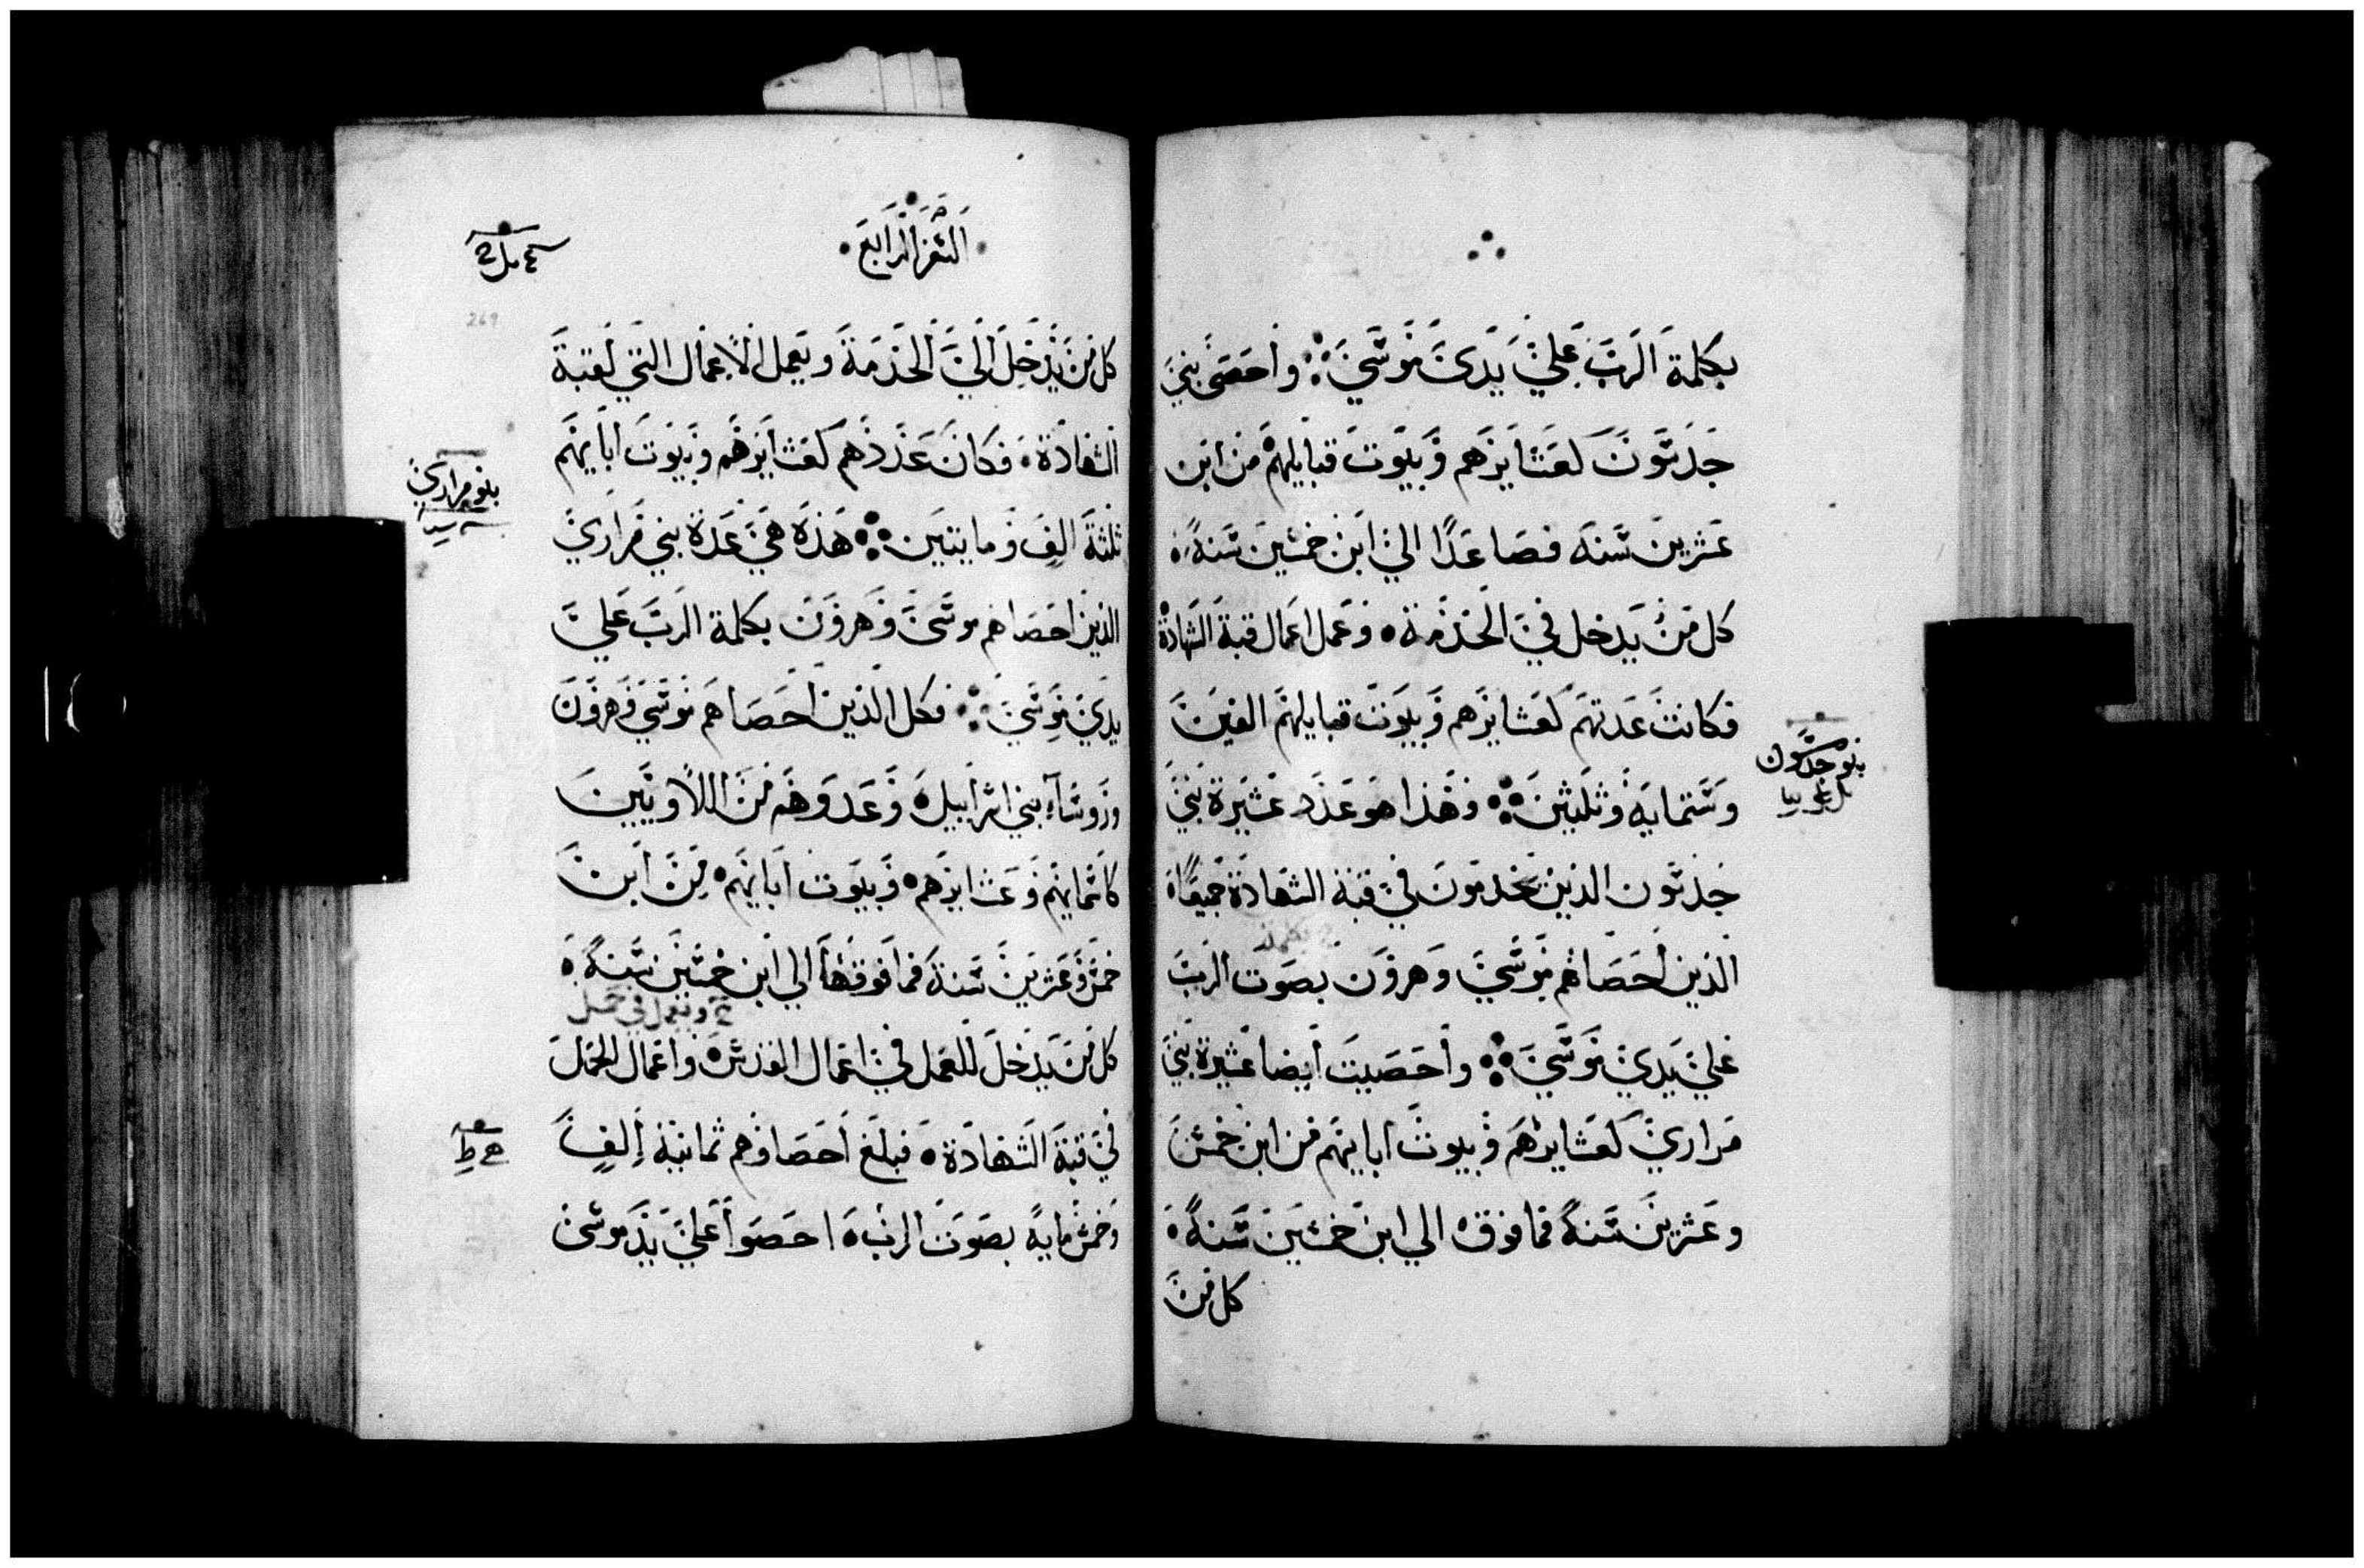 بكلمة الرب علي يدي موسي ؞ واحصي بني
جدسون كعشايرهم وبيوت قبايلهم من ابن
عشرين سنه فصاعدا الي ابن خمسين سنة
كل من يدخل في الخدمة وعمل اعمال قبة الشهادة
فكانت عدتهم كعشايرهم وبيوت قبايلهم الفين
وستمايه وثلثين ؞ وهذا هو عدد عشيرة بني
جدسون الذين يخدمون في قبة الشهادة جميعا
الذين احصاهم موسي وهرون بصوت الرب
علي يدي موسي ؞ واحصيت ايضا عشيرة بني
مراري كعشايرهم وبيوت ابايهم من ابن خمس
وعشرين سنة فما فوق الي ابن خمسين سنة
كل من
بنو جدسون
السفر الرابع
269
كل من يدخل الي الخدمة ويعمل الاعمال التي لقبة
الشهادة فكان عددهم كعشايرهم وبيوت ابايهم
ثلثة الف ومايتين ؞ هذه هي عدة بني مراري
الذين احصاهم موسي وهرون بكلمة الرب علي
يدي موسي ؞ فكل الذين احصاهم موسي وهرون
وروساء بني اسراييل وعدوهم من اللاويين
كاسمايهم وعشايرهم وبيوت ابايهم من ابن
خمس وعشرين سنة فما فوقها الي ابن خمسين سنة
ويعمل في
كل من يدخل للعمل في اعمال القدس واعمال الحمل
في قبة الشهادة فبلغ احصاوهم ثمانية الف
وخمسمايه بصوت الرب احصوا علي يد موسي
بنو مراري